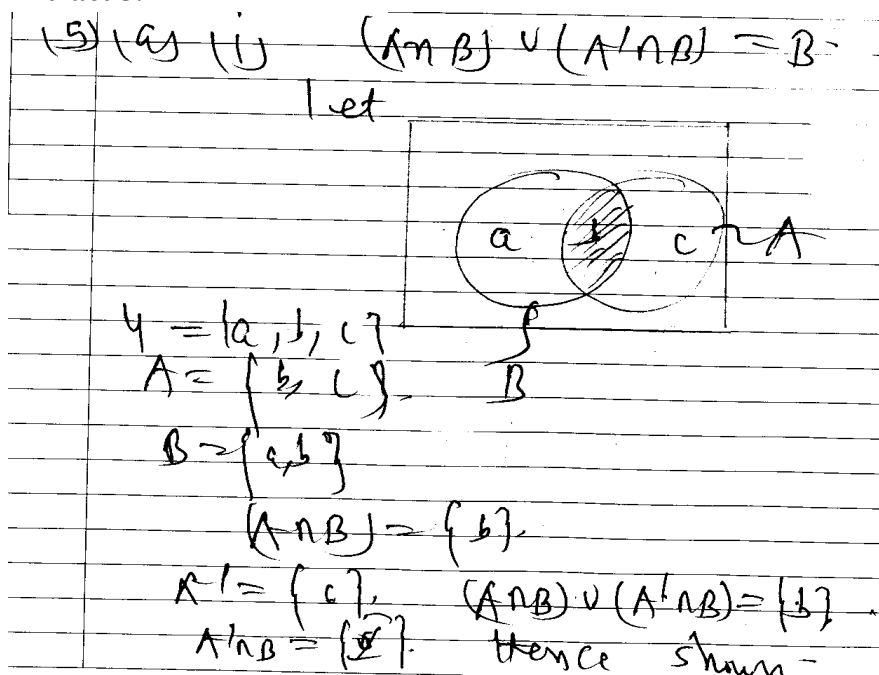 (5) (a) (i) (A∩B) ∪ (A'∩B) = B.
Let
a b c A
U = {a, b, c}
A = {b, c}. B
B = {a, b}
(A∩B) = {b}.
A' = {c}. (A∩B) ∪ (A'∩B) = {b}.
A'∩B = { }. Hence shown